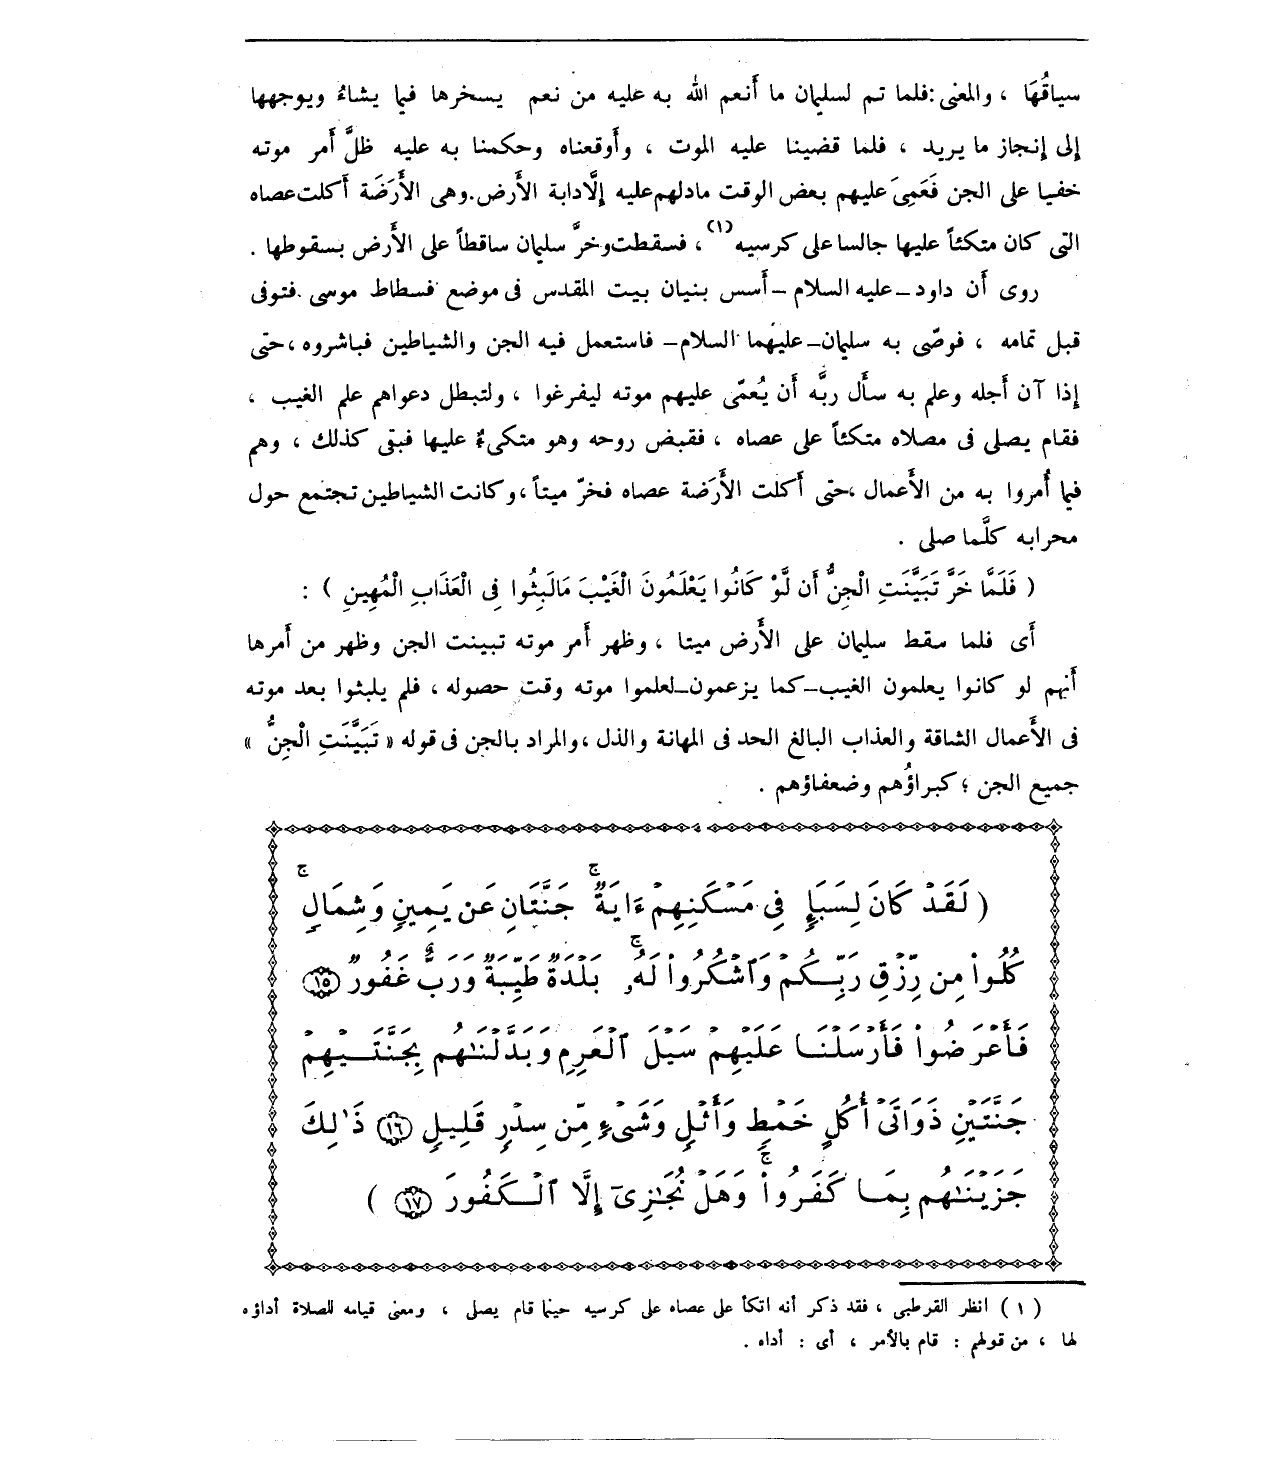 سياقُهَا ، والمعنى :فلما تم لسليمان ما أَنعم الله به عليه من نعم يسخرها فيما يشاءُ ويوجهها
إلى إنجاز ما يريد ، فلما قضينا عليه الموت ، وأَوقعناه وحكمنا به عليه ظلَّ أَمر موته
خفيا على الجن فَعَمِىَ عليهم بعض الوقت مادلهم عليه إلَّادابة الأَرض.وهى الأَرَضَة أَكلت عصاه
التى كان متكئاً عليها جالسا على كرسيه(١)، فسقطت وخرَّ سليمان ساقطاً على الأَرض بسقوطها .
روى أَن داود ــ عليه السلام ــ أَسس بنيان بيت المقدس فى موضع فسطاط موسى . فتوفى
قبل تمامه ، فوصّى به سليمان ــ عليهما السلام ــ فاستعمل فيه الجن والشياطين فباشروه ،حتى
إذا آن أَجله وعلم به سأَل ربَّه أَن يُعمّى عليهم موته ليفرغوا ، ولتبطل دعواهم علم الغيب ،
فقام يصلى فى مصلاه متكئاً على عصاه ، فقبض روحه وهو متكىءٌ عليها فبقى كذلك ، وهم
فيما أُمروا به من الأَعمال ،حتى أَكلت الأَرَضة عصاه فخرّ ميتاً ،وكانت الشياطين تجتمع حول
محرابه كلَّما صلى .
( فَلَمَّا خَرَّ تَبَيَّنَتِ الْجِنُّ أَن لَّوْ كَانُوا يَعْلَمُونَ الْغَيْبَ مَالَبِثُوا فِى الْعَذَابِ الْمُهِينِ ) :
أَى فلما سقط سليمان على الأَرض ميتا ، وظهر أَمر موته تبينت الجن وظهر من أَمرها
أَنهم لو كانوا يعلمون الغيب ــ كما يزعمون ــ لعلموا موته وقت حصوله ، فلم يلبثوا بعد موته
فى الأَعمال الشاقة والعذاب البالغ الحد فى المهانة والذل ،والمراد بالجن فى قوله « تَبَيَّنَتِ الْجِنُّ »
جميع الجن ؛ كبراؤُهم وضعفاؤهم .
( لَقَدْ كَانَ لِسَبَإٍ فِى مَسْكَنِهِمْ ءَايَةٌ ۚ جَنَّتَانِ عَن يَمِينٍ وَشِمَالٍ ۚ
كُلُوا۟ مِن رِّزْقِ رَبِّكُمْ وَٱشْكُرُوا۟ لَهُۥ ۚ بَلْدَةٌ طَيِّبَةٌ وَرَبٌّ غَفُورٌ ١٥
فَأَعْرَضُوا۟ فَأَرْسَلْنَا عَلَيْهِمْ سَيْلَ ٱلْعَرِمِ وَبَدَّلْنَـٰهُم بِجَنَّتَيْهِمْ
جَنَّتَيْنِ ذَوَاتَىْ أُكُلٍ خَمْطٍ وَأَثْلٍ وَشَىْءٍ مِّن سِدْرٍ قَلِيلٍ ١٦ ذَٰلِكَ
جَزَيْنَـٰهُم بِمَا كَفَرُوا۟ ۚ وَهَلْ نُجَـٰزِىٓ إِلَّا ٱلْكَفُورَ ١٧ )
( ١ ) انظر القرطبى ، فقد ذكر أنه اتكأ على عصاه على كرسيه حينما قام يصلى ، ومعنى قيامه للصلاة أداؤه
لها ، من قولهم : قام بالأمر ، أى : أداه .